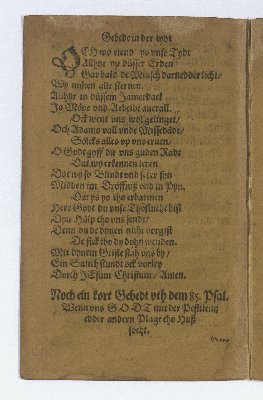 Gebede in der tydt
OCH wo elend ys unse Tydt
Allhyr up düsser Erden/
Gar bald de Minsch darnedder licht/
Wy möten alle sterven.
Allhyr in düssem Jamerdael
Is Möye und Arbeidt averall.
Ock wenn uns wol gelinget/
Och Adams vall unde Missedadt/
Sölckes alles up uns erven/
O Godt gyff du uns guden Radt
Dat wy erkennen leren
Dat wy so Blindt und seker syn
Midden im und in Pyn.
Dat ys yo tho erbarmen
Here Godt du unse Thoflucht bist
Dyn Hülp tho uns sende/
Denn du de dynen nicht vergist
De sick tho dy dohn wenden.
Mit dynem Geiste stah uns by/
Ein Salich stundt ock vorley
Dorch JEsum Christum/ Amen.
Noch ein kort Gebedt uth dem 85. Psal.
Wenn uns GODT mit der Pestilentz
edder andern Plage tho Huß
söcht.